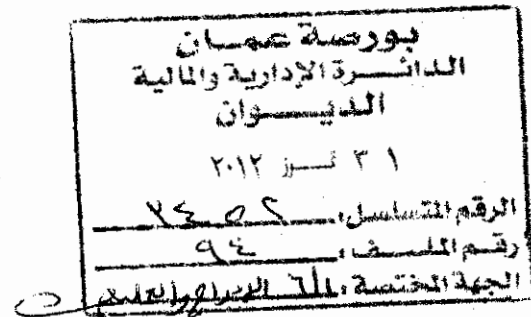 بورصة عمان
الدائرة الإدارية والمالية
الديوان
٣١ تموز ٢٠١٢
الرقم المتسلسل:
رقم الملف: ٩٤
الجهة المختصة: